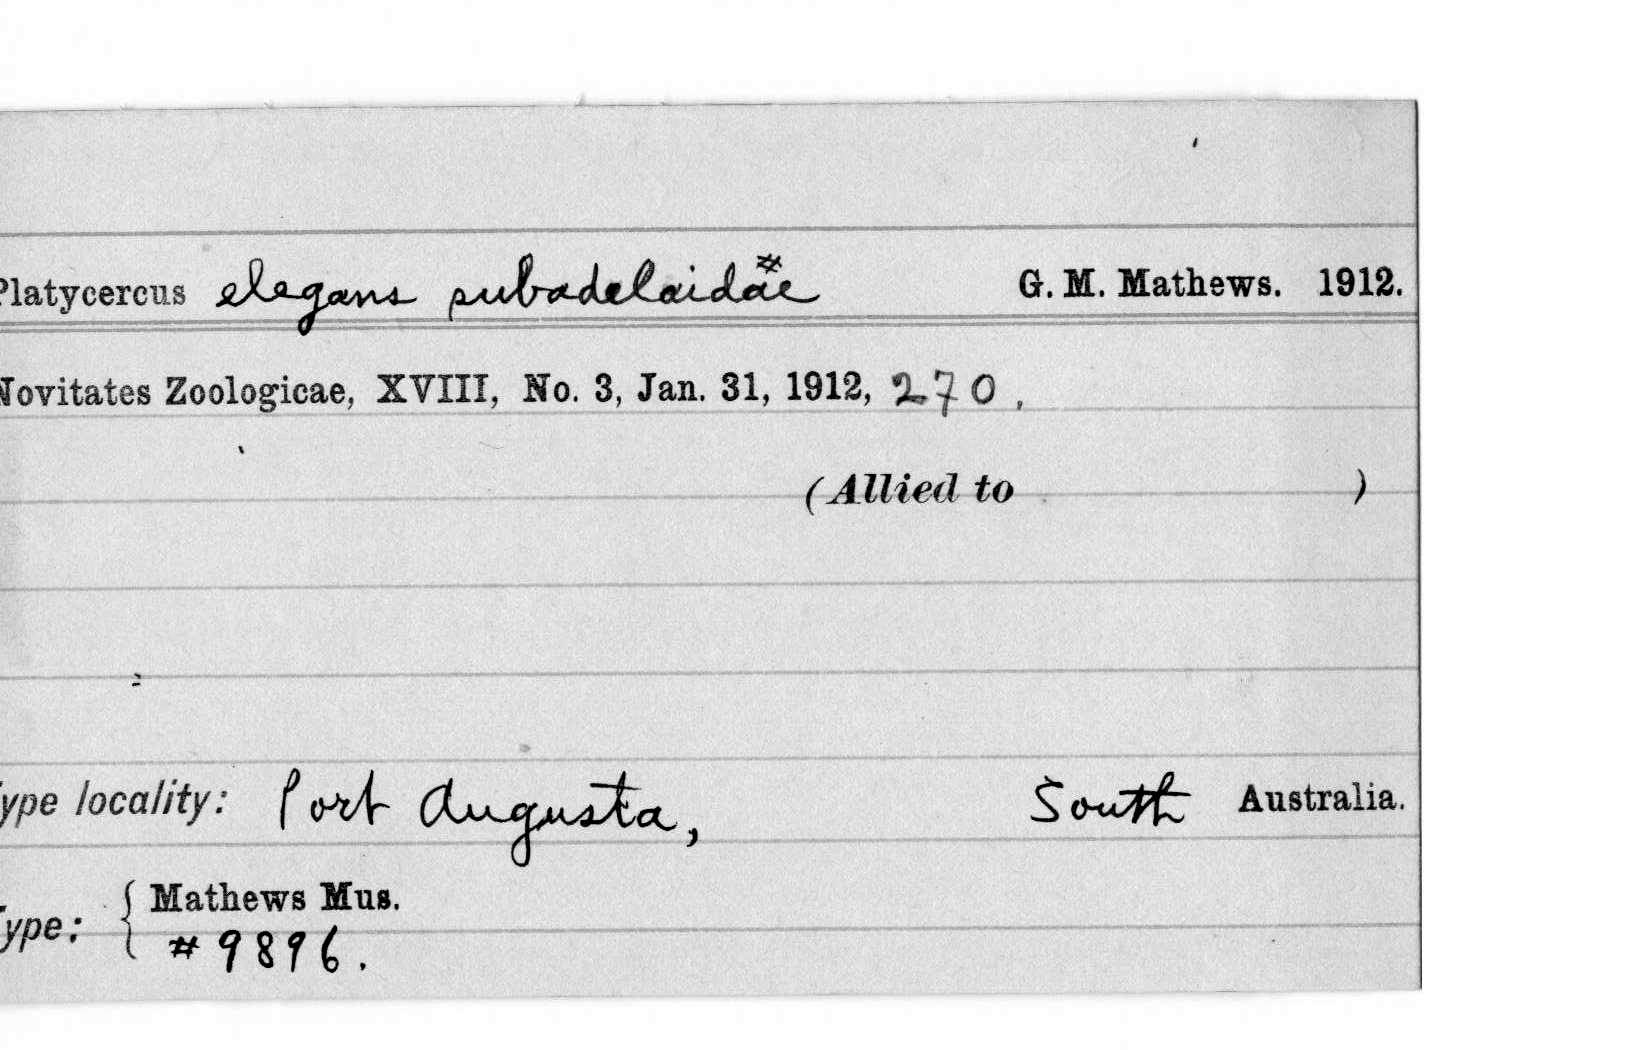 Platycercus elegans subadelaidae # G. M. Mathews. 1912.
Novitates Zoologicae, XVIII, No. 3, Jan. 31, 1912, 270.
(Allied to )
Type locality: Port Augusta, South Australia.
Mathews Mus.
Type: { # 9896.